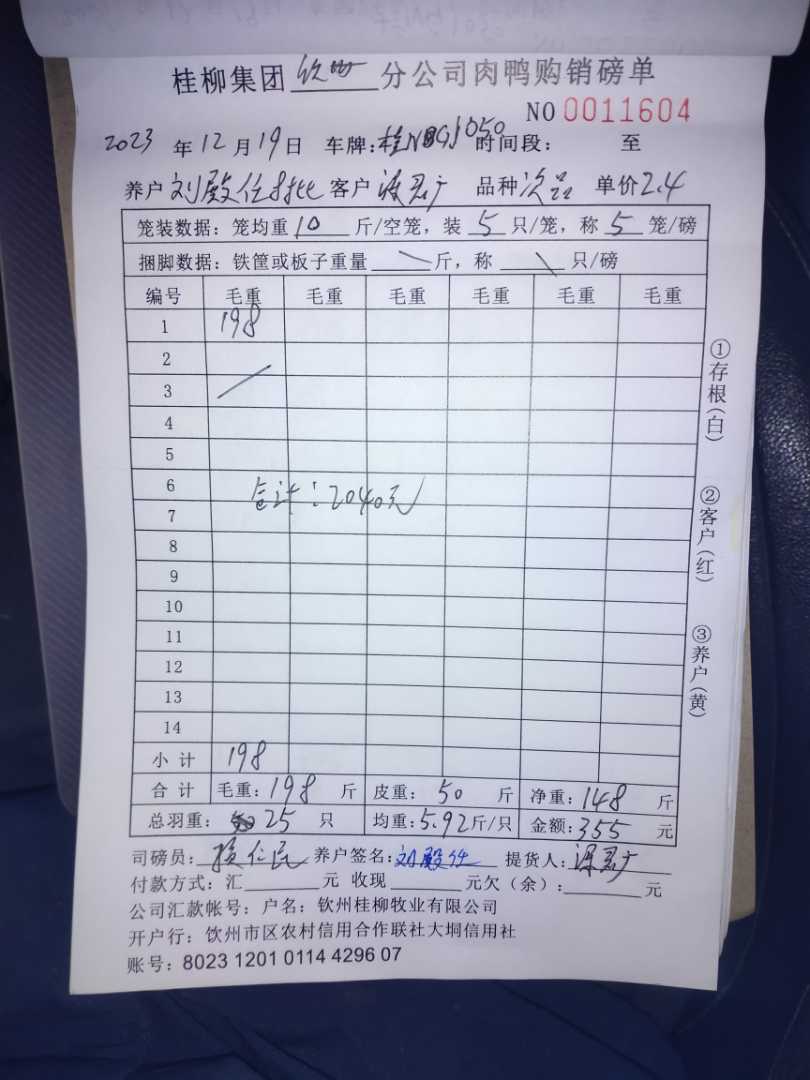 桂柳集团 钦州 分公司肉鸭购销磅单
NO 0011604
2023 年 12 月 19 日 车牌: 时间段: 至
养户 刘殿任 客户 品种 次品 单价 2.4
笼装数据: 笼均重 10 斤/空笼, 装 5 只/笼, 称 5 笼/磅
捆脚数据: 铁筐或板子重量 \ 斤, 称 \ 只/磅
编号 毛重 毛重 毛重 毛重 毛重 毛重
1 198
2
3
4
5
6
合计:2040元
7
8
9
10
11
12
13
14
小计 198
合计 毛重: 198 斤 皮重: 50 斤 净重: 148 斤
总羽重: 25 只 均重: 5.92 斤/只 金额: 355 元
司磅员: 养户签名: 刘殿任 提货人:
付款方式: 汇 元 收现 元欠(余): 元
公司汇款帐号: 户名: 钦州桂柳牧业有限公司
开户行: 钦州市区农村信用合作联社大垌信用社
账号: 8023 1201 0114 4296 07
①存根(白)
②客户(红)
③养户(黄)